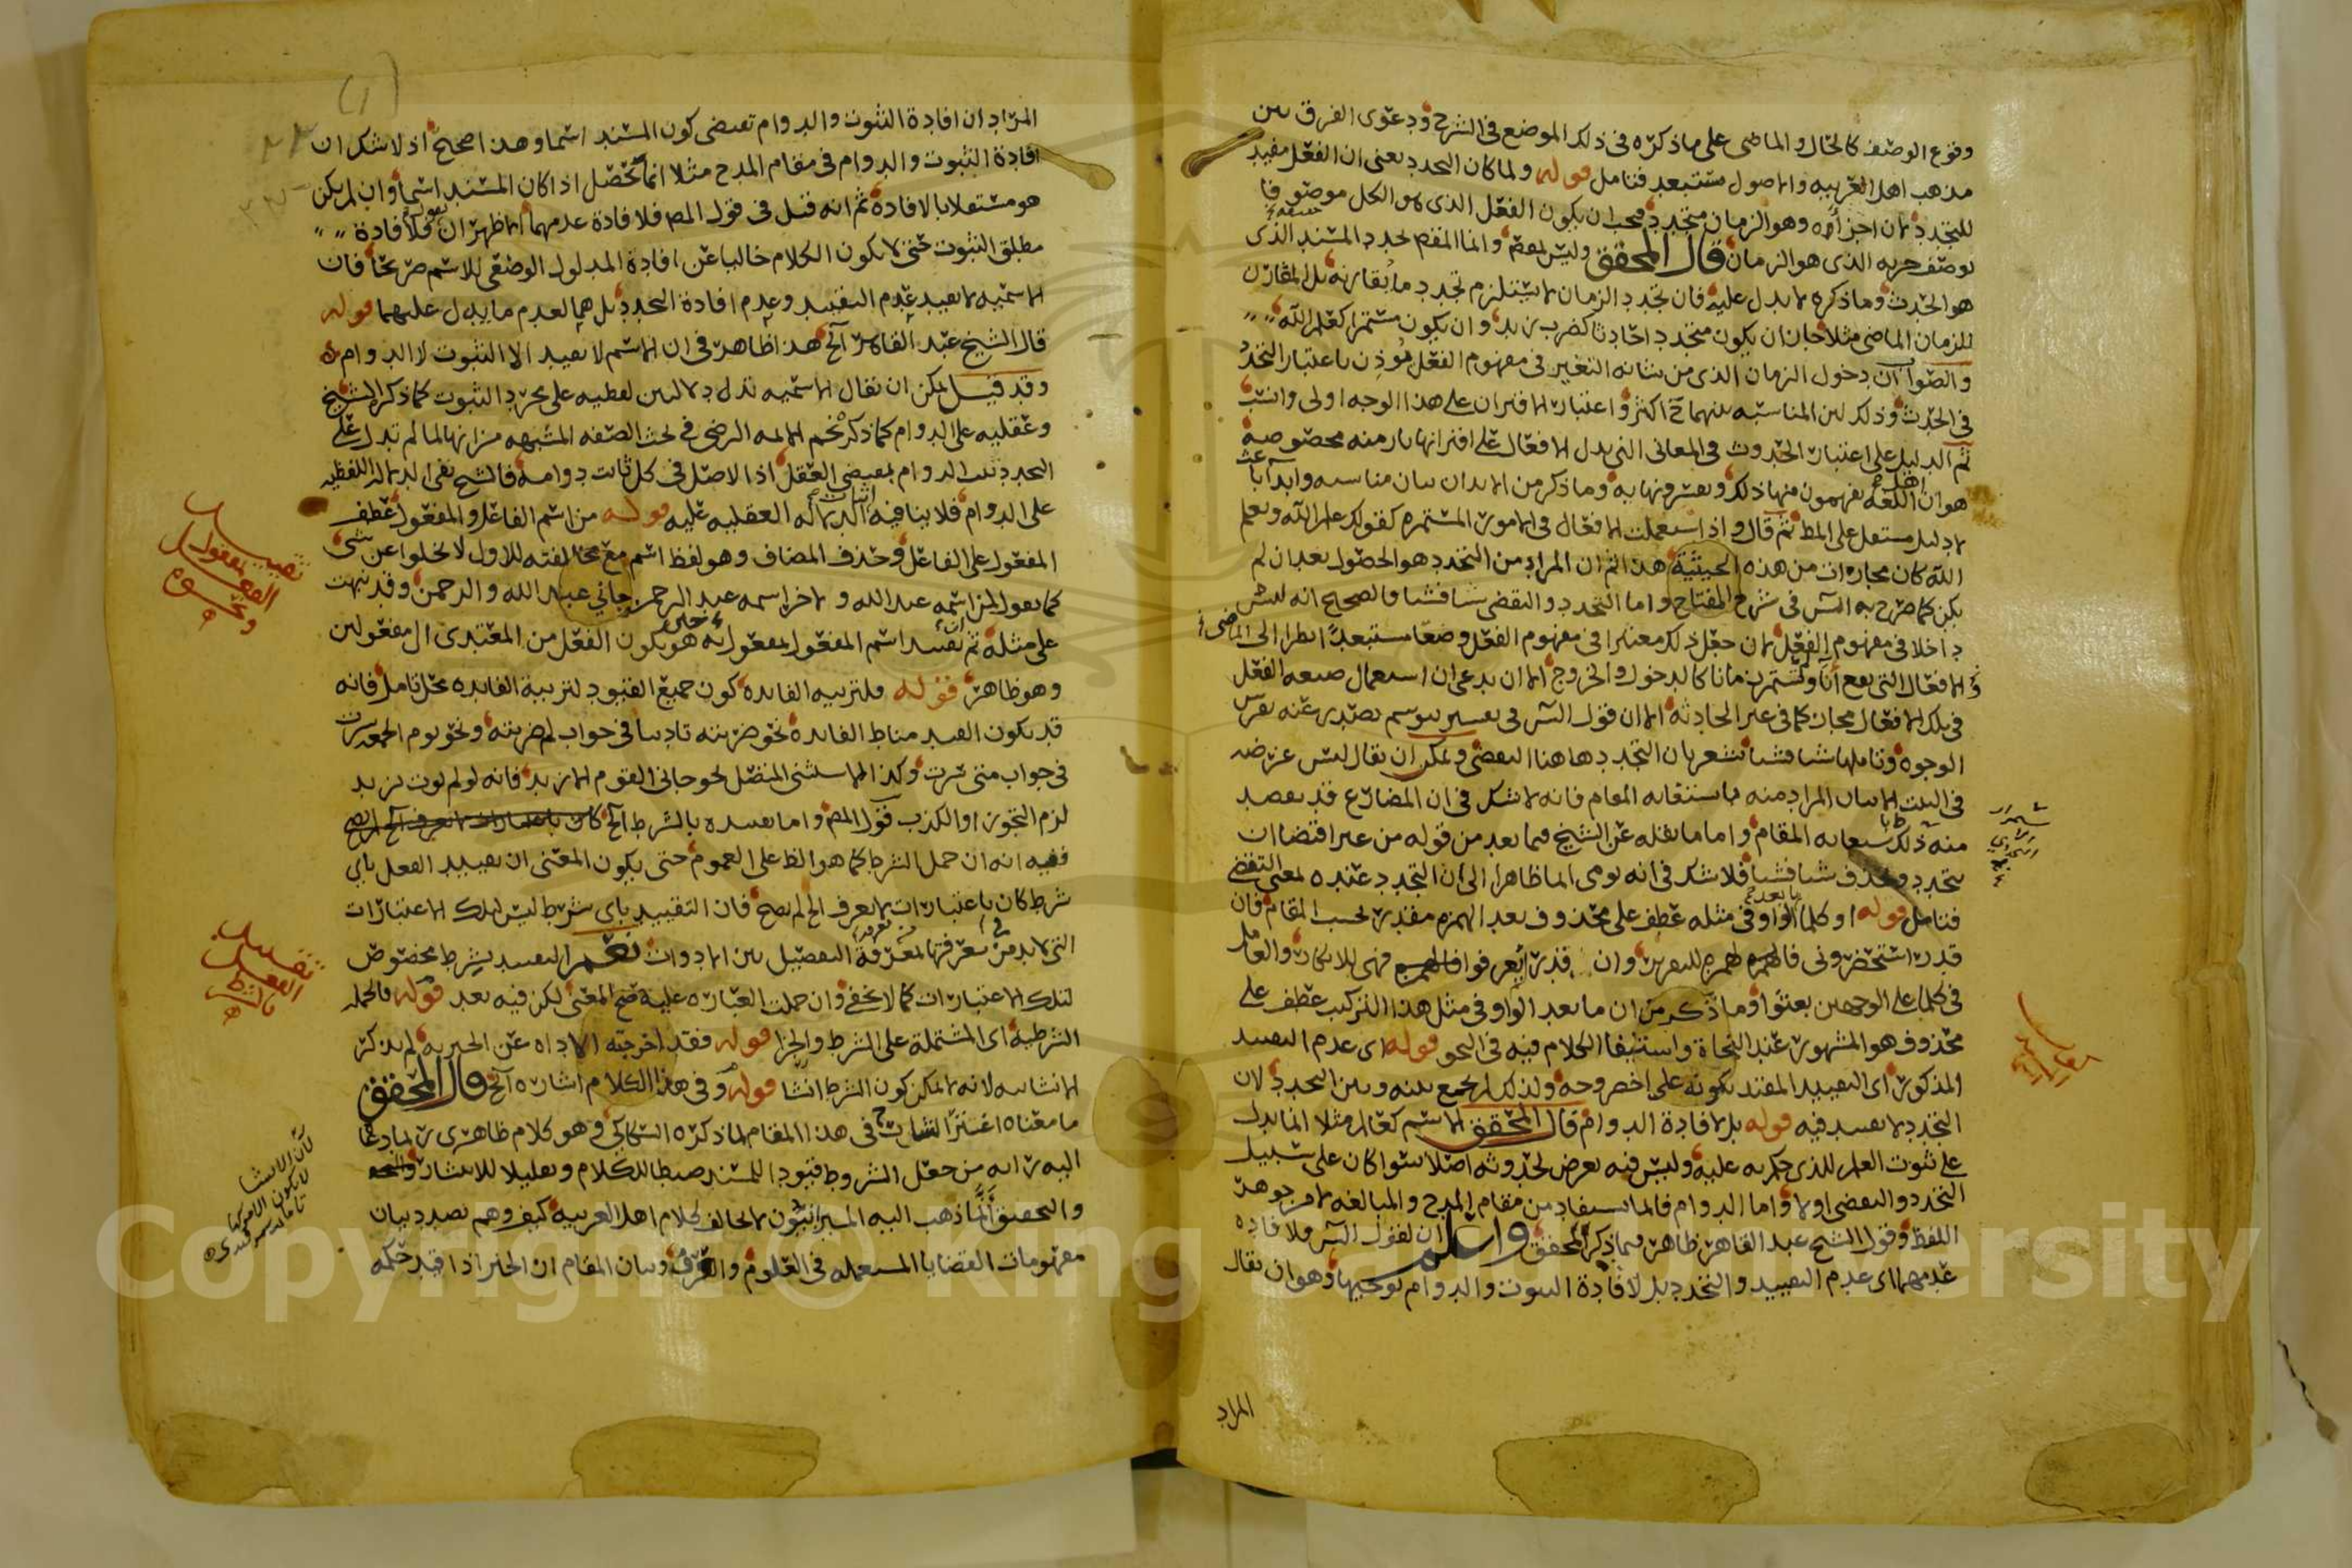 وقوع الوصف كالحال والماضى على ما ذكره فى ذلك الموضع فى الشرح ودعوى الفرق بين
مذهب اهل العربيه والاصول مستبعد فتامل قوله ولما كان التجدد يعنى ان الفعل مفيد
للتجدد لان احد اجزائه وهو الزمان متجدد فيجب ان يكون الفعل الذى هو الكل موصوفا
بوصف جزيه الذى هو الزمان قال المحقق وليس بعض وانما المقص تجدد المسند الذى
هو الحدث وما ذكره لا يدل عليه فان تجدد الزمان لا يستلزم تجدد ما يقارنه بل المقارن
للزمان الماضى مثلا جاز ان يكون متجددا حادثا كضرب زيد وان يكون مستمرا كعلم الله
والصواب ان دخول الزمان الذى من شانه التغير فى مفهوم الفعل مؤذن باعتبار التجدد
فى الحدث وذلك لان المناسبه بينهما ح اكثر واعتبار الاقتران على هذا الوجه اولى وانسب
ثم الدليل على اعتبار الحدوث فى المعانى التى يدل الافعال على اقترانها بازمنه مخصوصة
هو ان اهل اللغه يفهمون منها ذلك ويفسرونها به وما ذكر من الايذان بيان مناسبه وابداء باعث
لا دليل مستعل على المط ثم قال واذا استعملت الافعال فى الامور المستمره كقولك علم الله ويعلم
الله كان مجازا من هذه الحيثية هذا ثم ان المراد من التجدد هو الحصول بعد ان لم
يكن كما صرح به الش فى شرح المفتاح واما التجدد والتقضى شيا فشيا فالصحيح انه ليس
داخلا فى مفهوم الفعل لان جعل ذلك معتبرا فى مفهوم الفعل وضعا مستبعد نظرا الى الماضى
والافعال التى تقع آنا وتستمر زمانا كالدخول والخروج الا ان يدعى ان استعمال صيغه الفعل
فى تلك الافعال مجاز كما فى غير الحادثه الا ان قول الش فى تفسير يتوسم يصدر عنه تفرس
الوجوه وتاملها شيا فشيا تشعر بان التجدد هاهنا التقضى ويمكن ان يقال ليس غرضه
فى البيت الا بيان المراد منه باستعانه المقام فانه لا شك فى ان المضارع قد يقصد
منه ذلك باستعانه المقام واما ما نقله عن الشيخ فيما بعد من قوله من غير اقتضا ان
يتجدد ويحدث شيا فشيا فلا شك فى انه يومى الماظاهرا الى ان التجدد عنده لمعنى التقضى
فتامل قوله او كلما الواو فى مثله عطف على محذوف بعد الهمزه مقدر بحسب المقام فان
قدر استحضرونى فالهمزه للتقرير وان قدر ايعرفوا فهى للانكار والعامل
فى كلما على الوجهين بعثوا وما ذكر من ان ما بعد الواو فى مثل هذا التركيب عطف على
محذوف هو المشهور عند النحاة واستيفا الكلام فيه فى النحو قوله اى عدم التقييد
المذكور اى التقييد المقيد بكونه على اخصر وجه ولذلك لم يجمع بينه وبين التجدد لان
التجدد لا تقييد فيه قوله بل لافادة الدوام قال المحقق الاسم كعالم مثلا انما يدل
على ثبوت العلم للذى حكم به عليه وليس فيه تعرض لحدوثه اصلا سوا كان على سبيل
التجدد والتقضى او لا واما الدوام فانما يستفاد من مقام المدح والمبالغه لا من جوهر
اللفظ وقول الشيخ عبد القاهر ظاهر فيما ذكر المحقق واعلم ان لقول الش فلا فاده
عدمهما اى عدم التقييد والتجدد بل لافادة الثبوت والدوام توجيها وهو ان يقال
المراد
المراد ان افادة الثبوت والدوام تقتضى كون المسند اسما وهذا صحيح اذ لا شك ان
افادة الثبوت والدوام فى مقام المدح مثلا انما تحصل اذا كان المسند اسما وان لم يكن
هو مستقلا بالافادة ثم انه قيل فى قول المص فلافادة عدمهما الاظهر ان يقول فلافادة
مطلق الثبوت حتى لا يكون الكلام خاليا عن افادة المدلول الوضعى للاسم صريحا فان
الاسميه لا يفيد عدم التقييد وعدم افادة التجدد بل هما لعدم ما يدل عليهما قوله
قال الشيخ عبد القاهر الخ هذا ظاهر فى ان الاسم لا يفيد الا الثبوت لا الدوام
وقد قيل يمكن ان يقال الاسميه تدل دلالتين لفظيه على مجرد الثبوت كما ذكر الشيخ
وعقليه على الدوام كما ذكر نجم الايمه الرضى فى بحث الصفه المشبهه من انها لما لم تدل على
التجدد ثبت الدوام بمقتضى العقل اذ الاصل فى كل ثابت دوامه فالشيخ نفى الدلاله اللفظيه
على الدوام فلا ينافيه اثبات الدلاله العقليه عليه قوله من اسم الفاعل والمفعول عطف
المفعول على الفاعل وحذف المضاف وهو لفظ اسم مع مخالفته للاول لا يخلوا عن شى
كما تقول لمن اسمه عبد الله ولاخر اسمه عبد الرحمن جانى عبد الله والرحمن وقد نبهت
على مثله ثم تقييد اسم المفعول بمفعول به هو حين يكون الفعل من المعتدى الى مفعولين
وهو ظاهر فقوله فلتربيه الفايده كون جميع القيود لتربية الفايده محل تامل فانه
قد يكون القيد مناط الفايدة نحو ضربته تاديبا فى جواب لم ضربته ونحو يوم الجمعه سرت
فى جواب متى سرت وكذا الاستثنى المتصل نحو جانى القوم الا زيد فانه لو لم يوت بزيد
لزم التجوز او الكذب قول المص واما تقييده بالشرط الخ
ففيه انه ان حمل الشرط كما هو الظ على العموم حتى يكون المعنى ان تقييد الفعل باي
شرط كان باعتبارات لا يعرف الخ لم يصح فان التقييد باى شرط ليس لتلك الاعتبارات
التى لا بد فى معرفتها من معرفة التفصيل بين الادوات نعم التقييد بشرط مخصوص
لتلك الاعتبارات كما لا يخفى وان حملت العباره عليه صح المعنى لكن فيه بعد قوله فالجمله
الشرطية اى المشتملة على الشرط والجزا قوله فقد اخرجته الاداه عن الخبريه لم يذكر
الانشاييه لانه لا يمكن كون الشرط انشا قوله وفى هذا الكلام اشاره الخ قال المحقق
ما معناه اغتر الشارح فى هذا المقام لما ذكره السكاكى وهو كلام ظاهرى ربما دعا
اليه رايه من جعل الشروط قيودا للمسند ضبطا للكلام وتعليلا للانتشار
والتحقيق ان ما ذهب اليه الميزانيون لا يخالف كلام اهل العربيه كيف وهم بصدد بيان
مفهومات القضايا المستعمله فى العلوم والعرف وبيان المقام ان الخبر اذا قيد حكمه